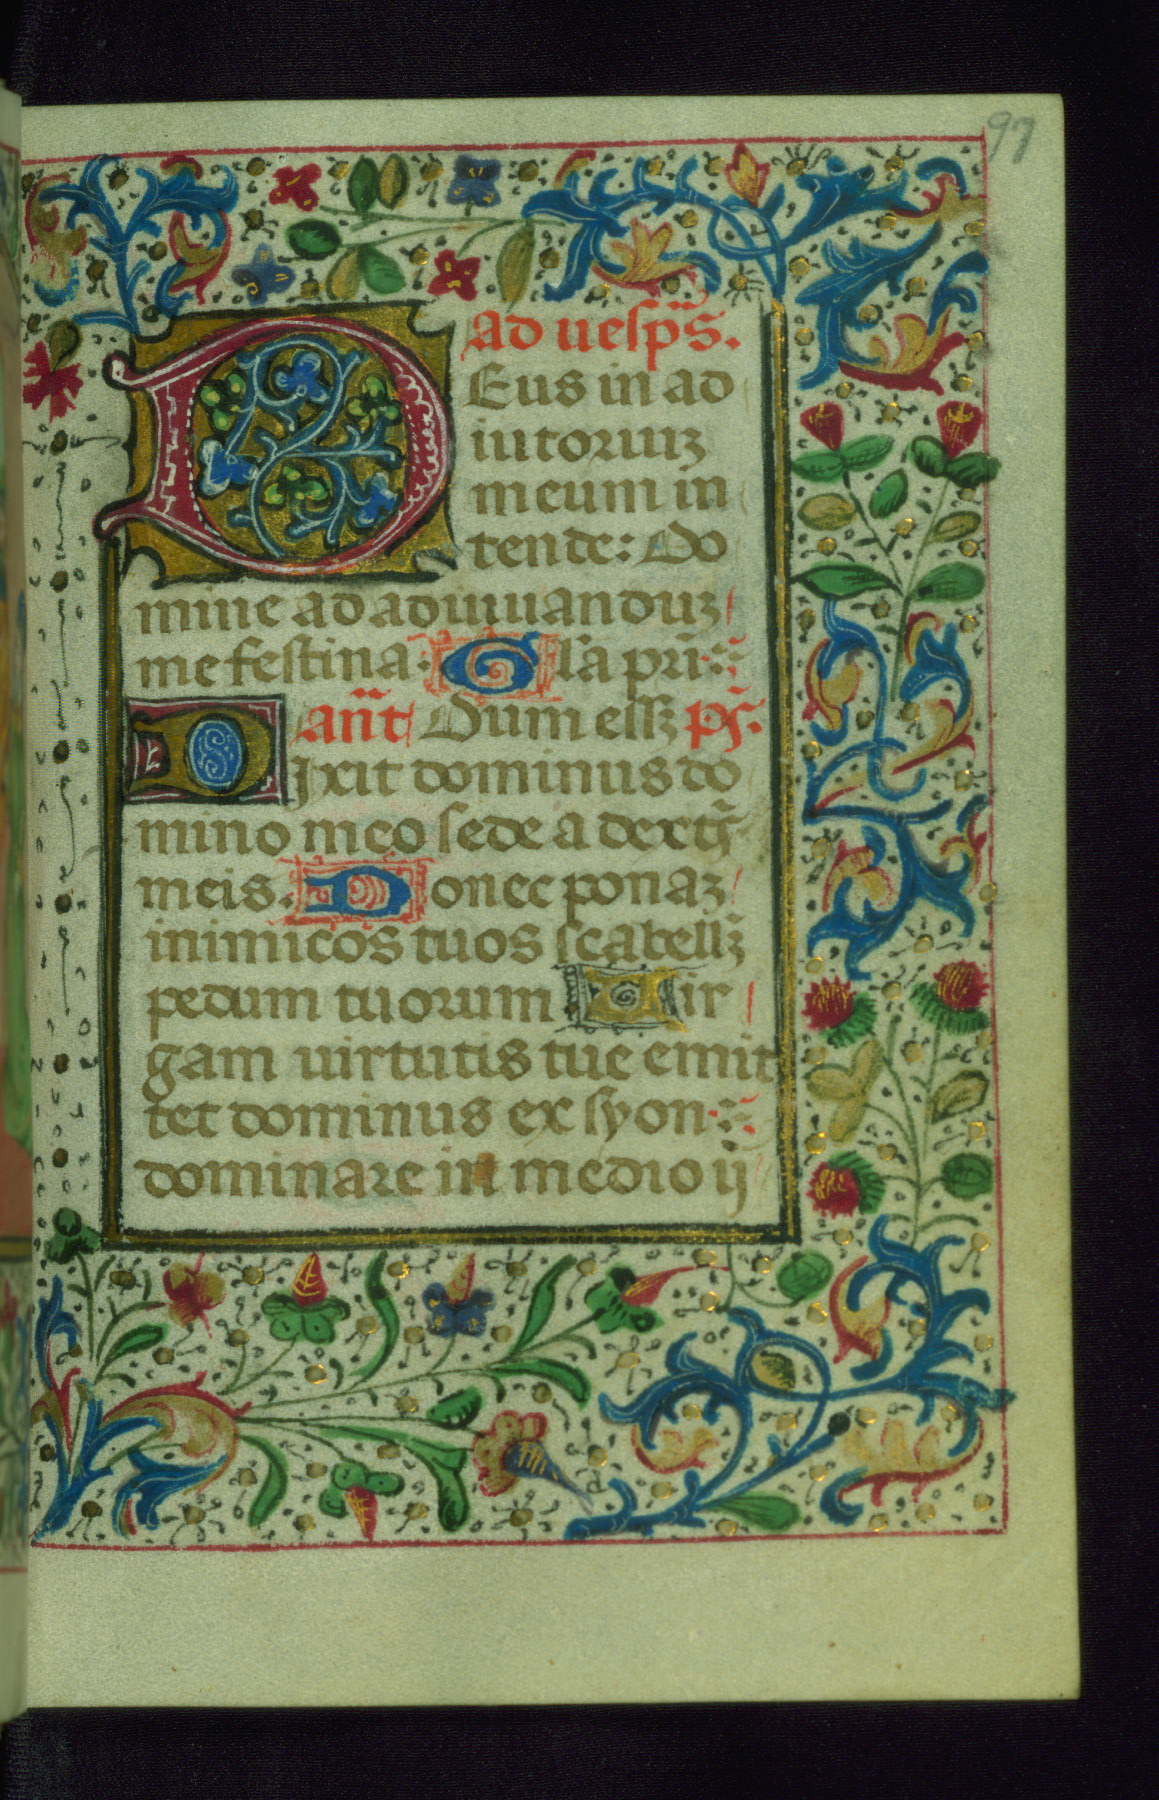 97
Ad uesp̃s.
DEus in ad
iutoriuꝫ
meum in
tende: Do
mine ad adiuuanduꝫ
me festina. Gl̃a pri:
An̄t Dum essꝫ ps̃.
Dixit dominus do
mino meo sede a dextꝭ
meis. Donec ponaꝫ
inimicos tuos scabellꝫ
pedum tuorum Uir
gam uirtutis tue emit
tet dominus ex syon:
dominare in medio ij